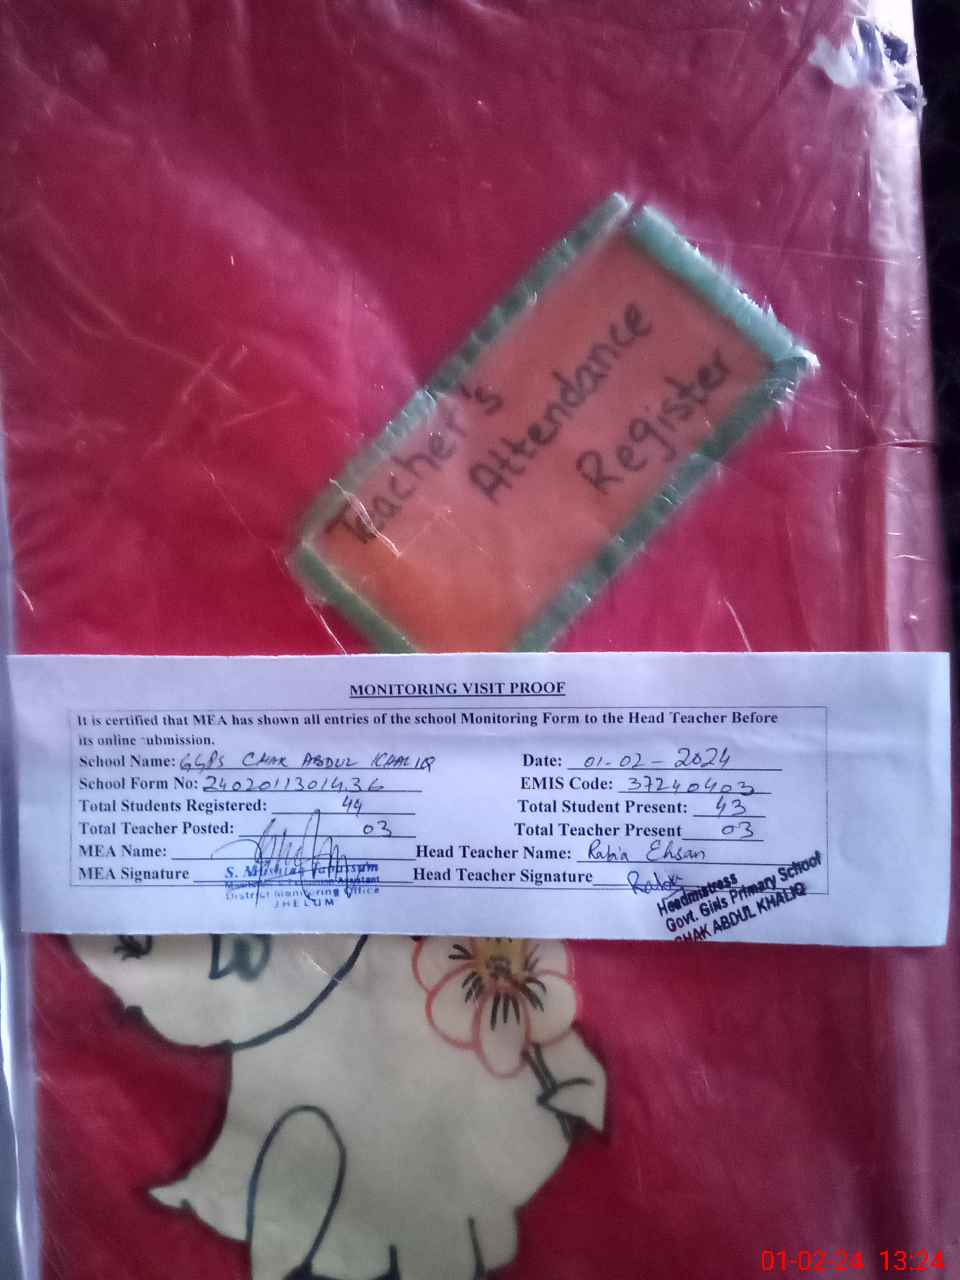 Teacher's
Attendance
Register
MONITORING VISIT PROOF
It is certified that MEA has shown all entries of the school Monitoring Form to the Head Teacher Before
its online submission.
School Name: GGPS CHAK ABDUL KHALIQ Date: 01-02-2024
School Form No: 2402011301436 EMIS Code: 37240403
Total Students Registered: 44 Total Student Present: 43
Total Teacher Posted: 03 Total Teacher Present 03
MEA Name: Head Teacher Name: Rabia Ehsan
MEA Signature Head Teacher Signature
District Monitoring Office
JHELUM
Headmistress
Govt. Girls Primary School
CHAK ABDUL KHALIQ
01-02-24 13:24